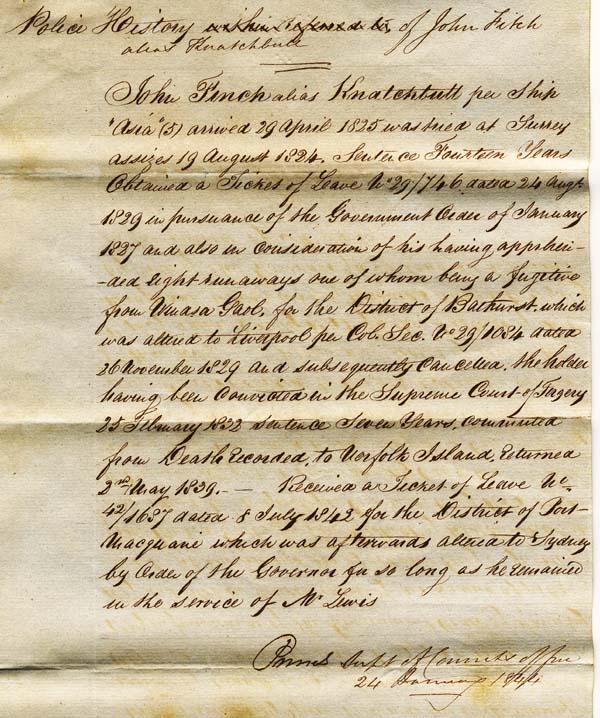 Police History within referred to of John Fitch
alias Knatchbull
John Finch alias Knatchbull per Ship
"Asia" (5) arrived 29 April 1825 was tried at Surrey
assizes 19 August 1824. Sentence Fourteen Years
Obtained a Ticket of Leave No 29/746 dated 24 Augt
1829 in pursuance of the Government Order of January
1827 and also in consideration of his having apprehen-
-ded Eight runaways one of whom being a fugitive
from Gaol, for the District of Bathurst, which
was altered to Liverpool per Col. Sec. No 29/1084 dated
26 November 1829 and subsequently Cancelled, the holder
having been Convicted in the Supreme Court of Forgery
25 February 1832 sentence Seven Years, commuted
from Death recorded, to Norfolk Island, returned
2nd May 1839. — Received a Ticket of Leave No
42/1637 dated 8 July 1842 for the District of Port
Macquarie which was afterwards altered to Sydney
by Order of the Governor for so long as he remained
in the service of Mr Lewis
Supt of Convicts office
24 January 1844